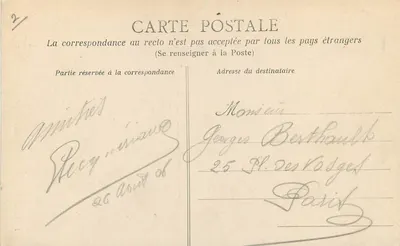 2
CARTE POSTALE
La correspondance au recto n'est pas acceptée par tous les pays étrangers
(Se renseigner à la Poste)
Partie réservée à la correspondance
Adresse du destinataire
Amitiés
26 Août 06
Monsieur
Georges Berthault
25 Pl. des Vosges
Paris